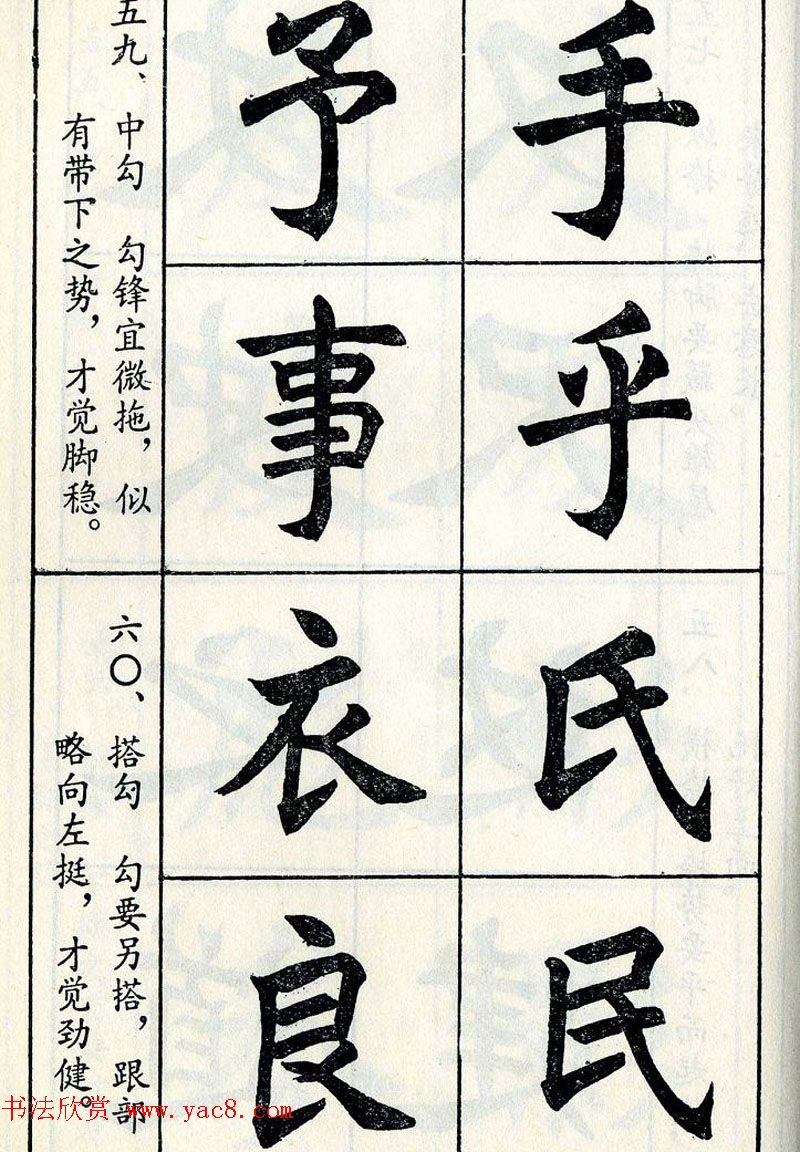 手乎氏民
予事衣良
五九、中勾 勾锋宜微拖，似
有带下之势，才觉脚稳。
六〇、搭勾 勾要另搭，跟部
略向左挺，才觉劲健。
书法欣赏 www.yac8.com